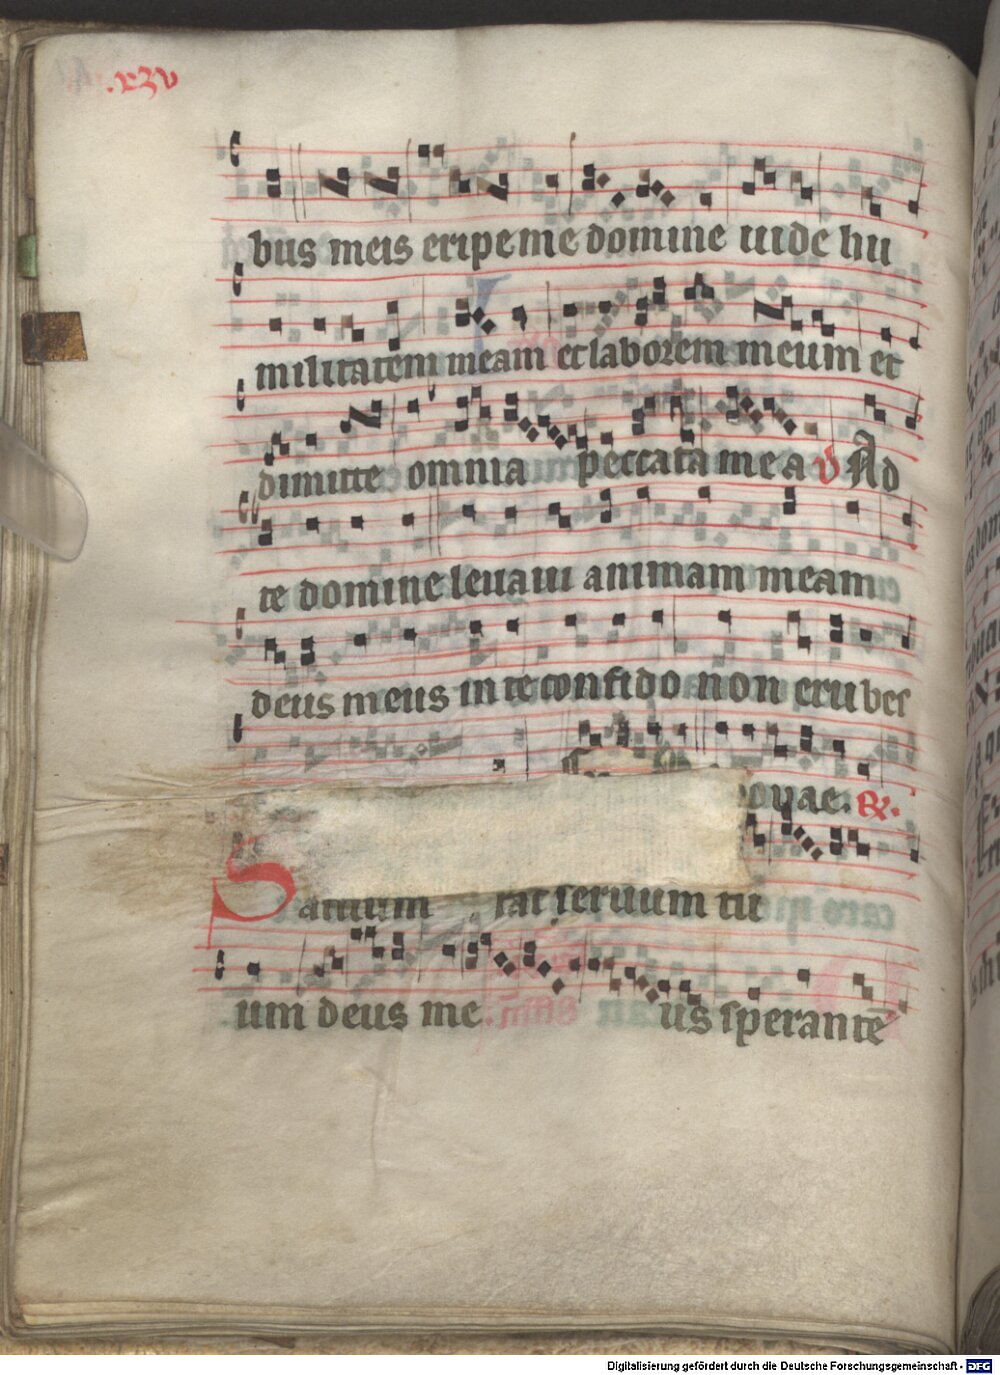 .xxv
bus meis eripe me domine uide hu
militatem meam et laborem meum et
dimitte omnia peccata mea V Ad
te domine leuaui animam meam
deus meus in te confido non erubes
ouae. &.
Saluum fac seruum tu
um deus me us sperantē
Digitalisierung gefördert durch die Deutsche Forschungsgemeinschaft - DFG